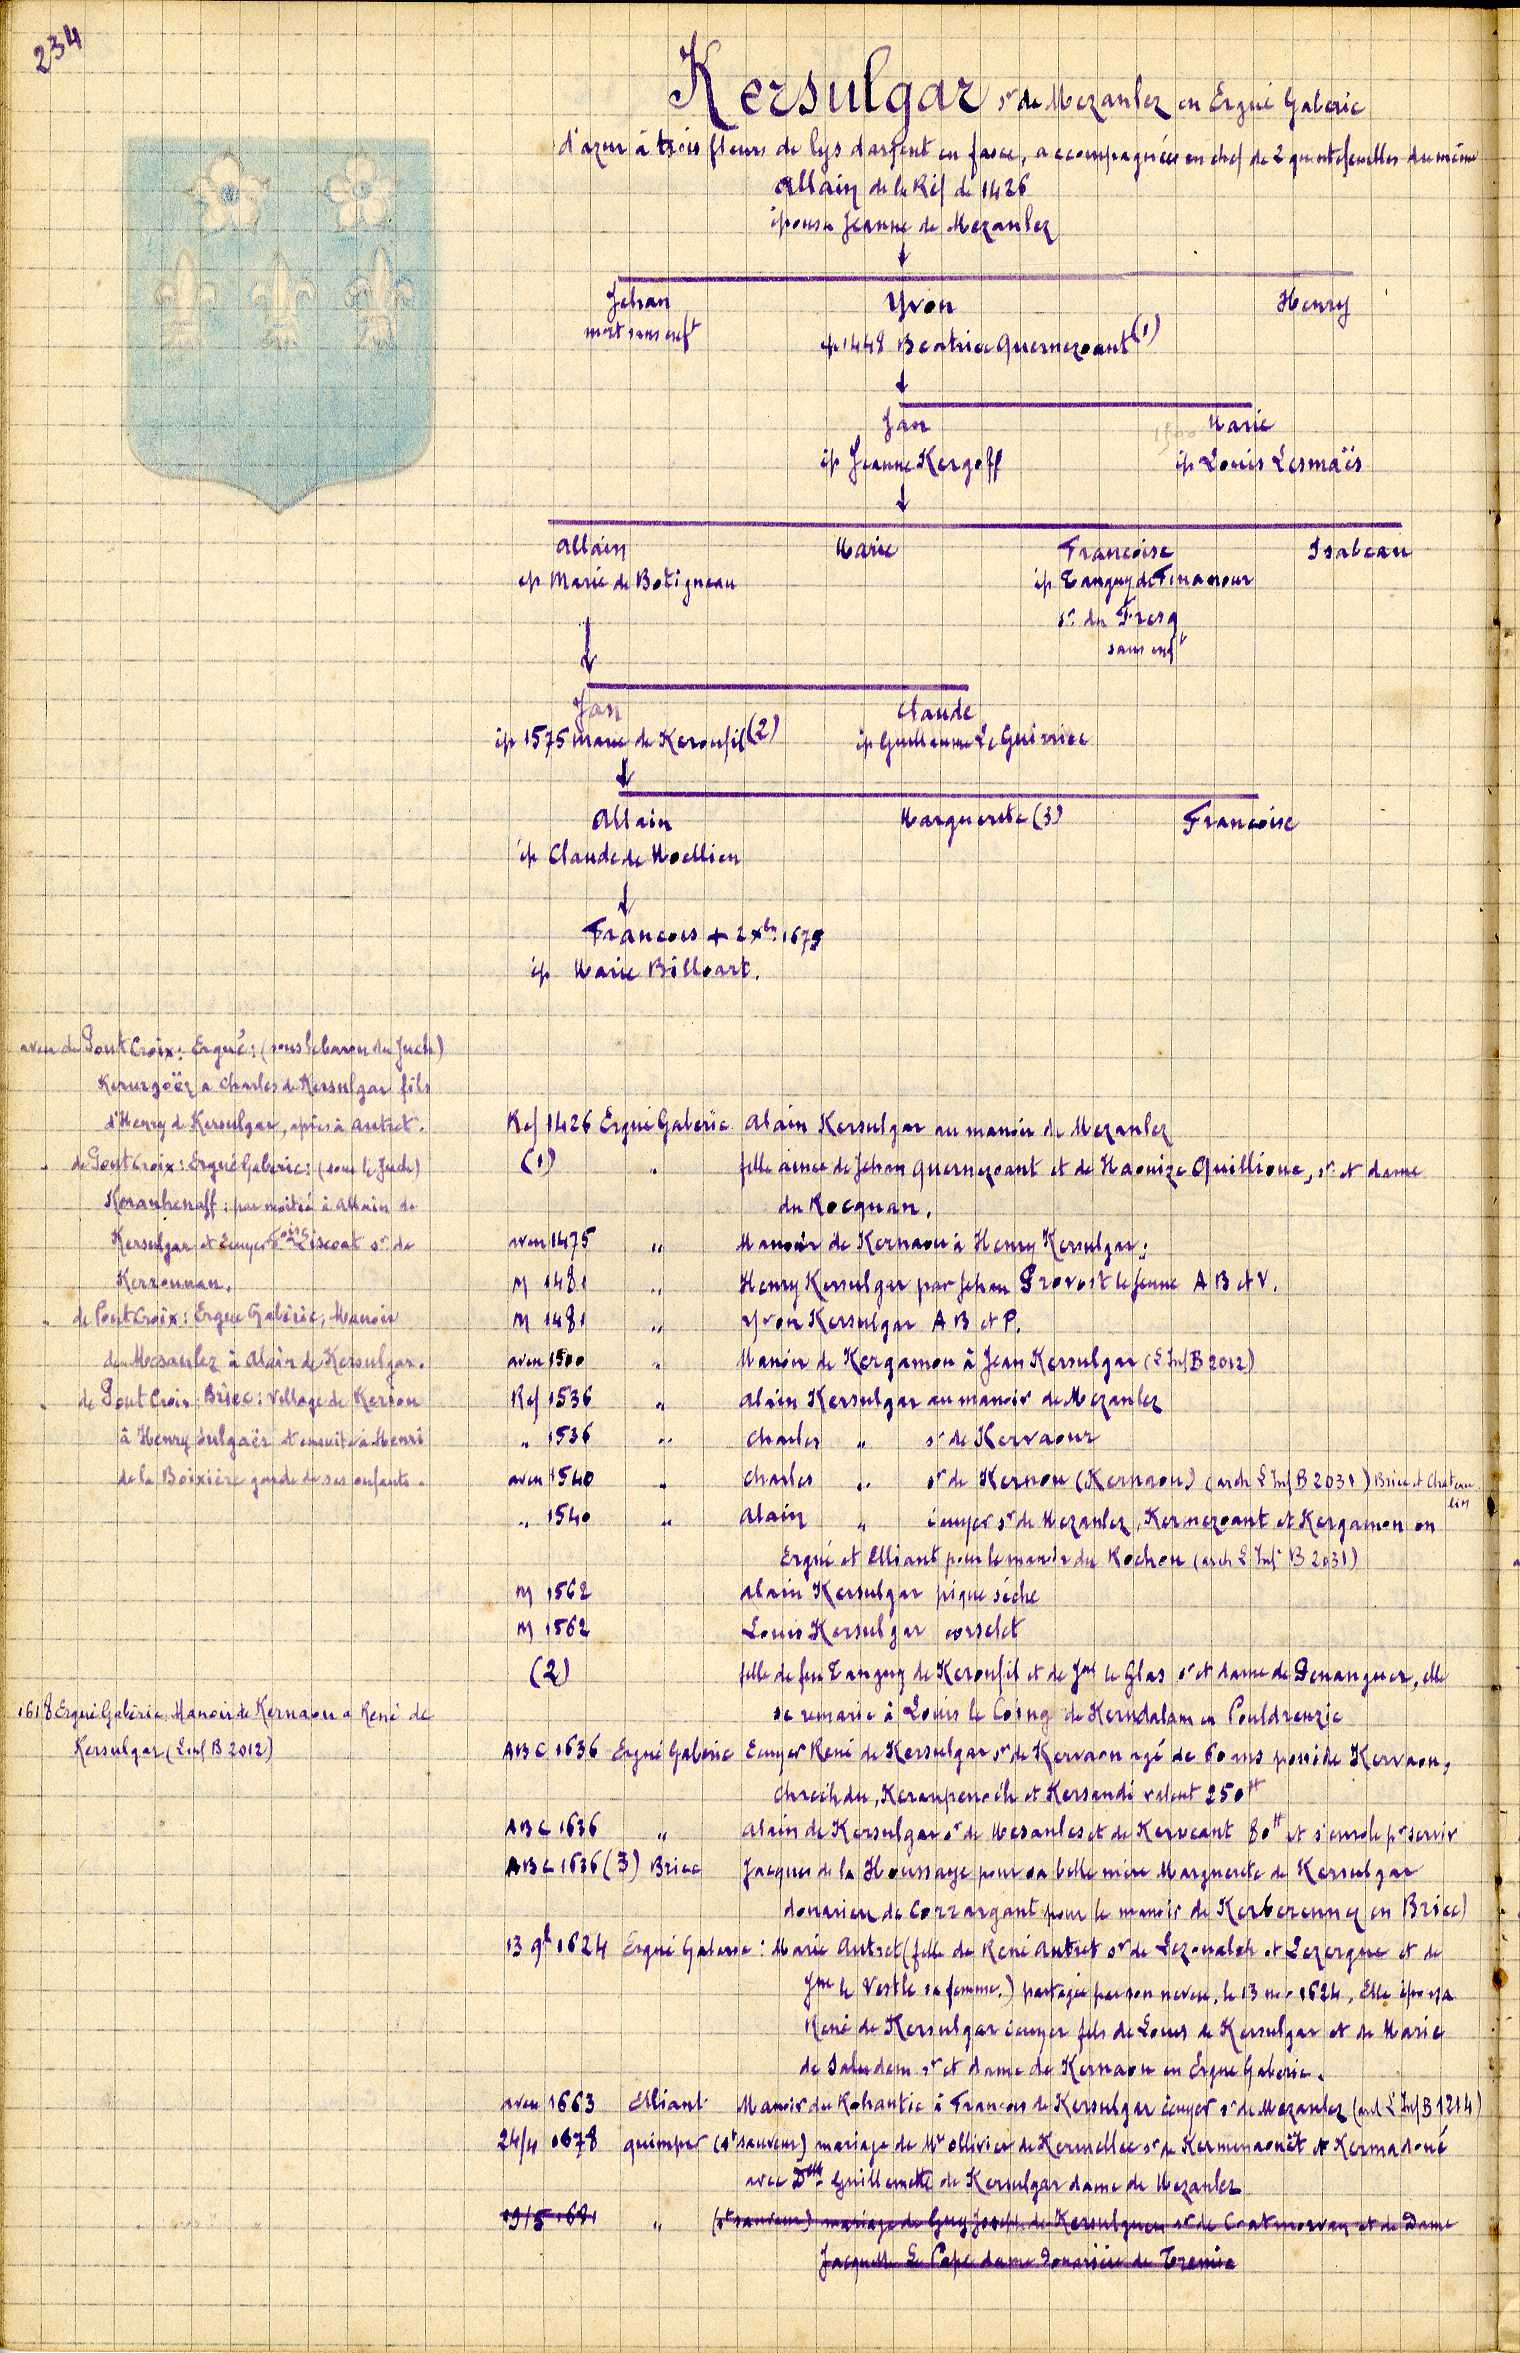 234
Kersulgar sr de Mezanlez en Ergué Gaberic
d'azur à trois fleurs de lys d'argent en fasce, accompagnées en chef de 2 quintefeuilles du même
Allain de la Réf de 1426
épousa Jeanne de Mezanlez
Jehan Yvon Henry
mort sans enft ép 1448 Beatrice Quernezoant (1)
Jan Marie
1500
ép Jeanne Kergoff ép Louis Lesmaës
Allain Marie Francoise Isabeau
ép Marie de Botigneau ép Tanguy de Tinanour
sr du Fresq
sans enft
Jan Claude
ép 1575 Marie de Keroufil (2) ép Guillaume Le Guirriec
Allain Marguerite (3) Francoise
ép Claude de Moellien
Francois + 2 xbre 1675
ép Marie Billoart.
aveu de Pont Croix: Ergué: (sous le baron du Juch)
Kerurgoëz a Charles de Kersulgar fils
d'Henry de Kersulgar, après à Autret.
" de Pont Croix: Ergué Gaberic: (sous le Juch)
Keranhenaff: par moitié à Allain de
Kersulgar et Ecuyer Fois Liscoat sr de
Kerrounan.
" de Pont Croix: Ergué Gaberic, Manoir
de Mesanlez à Alain de Kersulgar.
" de Pont Croix Briec: village de Keriou
à Henry Sulgaër et ensuite à Henri
de la Boixière garde de ses enfants.
Ref 1426 Ergué Gaberic Alain Kersulgar au manoir de Mezanlez
(1) " fille ainée de Jehan Quernezoant et de Haouize Quillioue, sr et dame
du Rocquan.
aveu 1475 " Manoir de Kernaou à Henry Kersulgar.
M 1481 " Henry Kersulgar par Jehan Provost le Jeune A B et V.
M 1481 " Yvon Kersulgar A B et P.
aveu 1500 " Manoir de Kergamon à Jean Kersulgar (L Inf B 2012)
Ref 1536 " Alain Kersulgar au manoir de Mezanlez
" 1536 " Charles " sr de Kervaour
aveu 1540 " Charles " sr de Kernou (Kernaou) (arch L Inf B 2031) Briec et Chateaulin
" 1540 " Alain " écuyer sr de Mezanlez, Kernezoant et Kergamon en
Ergué et Elliant pour le manoir du Rochou (arch L Inf B 2031)
M 1562 Alain Kersulgar pique sèche
M 1562 Louis Kersulgar corselet
(2) fille de feu Tanguy de Keroufil et de Jne le Glas sr et dame de Penanguer, elle
se remarie à Louis le Coing de Kerudalam en Pouldreuzic
1618 Ergué Gabéric, Manoir de Kernaou a René de
Kersulgar (L Inf B 2012)
ABC 1636 Ergué Gaberic Ecuyer René de Kersulgar sr de Kervaon agé de 60 ans possède Kervaon,
Chrech du, Keranpenoch et Kersandi valent 250tt
ABC 1636 " Alain de Kersulgar sr de Mesanles et de Kerveant 80tt et s'enrole pr servir
ABC 1636 (3) Briec Jacques de la Houssaye pour sa belle mère Marguerite de Kersulgar
douarière de Corrargant pour le manoir de Kerberenney en Briec)
13 9b 1624 Ergué Gaberic: Marie Autret (fille de René Autret sr de Lezoualch et Lezergue et de
Jne le Vestle sa femme.) partagée par son neveu, le 13 nov 1624, Elle épousa
René de Kersulgar écuyer fils de Louis de Kersulgar et de Marie
de Saludem sr et dame de Kernaou en Ergué Gaberic.
aveu 1663 Elliant Manoir du Rohantic à Francois de Kersulgar écuyer sr de Mezanlez (arch L Inf B 1214)
24/4 1678 quimper (St sauveur) mariage de Mr Ollivier de Kermellec sr de Kermenaouët et Kermadoué
avec Dlle Guillemette de Kersulgar dame de Mezanlez
19/5 1681 " (St sauveur) mariage de Guy Joseph de Kersulguen sr de Coatmorvan et de Dame
Jacquette Le Pape dame Douairière de Tremic